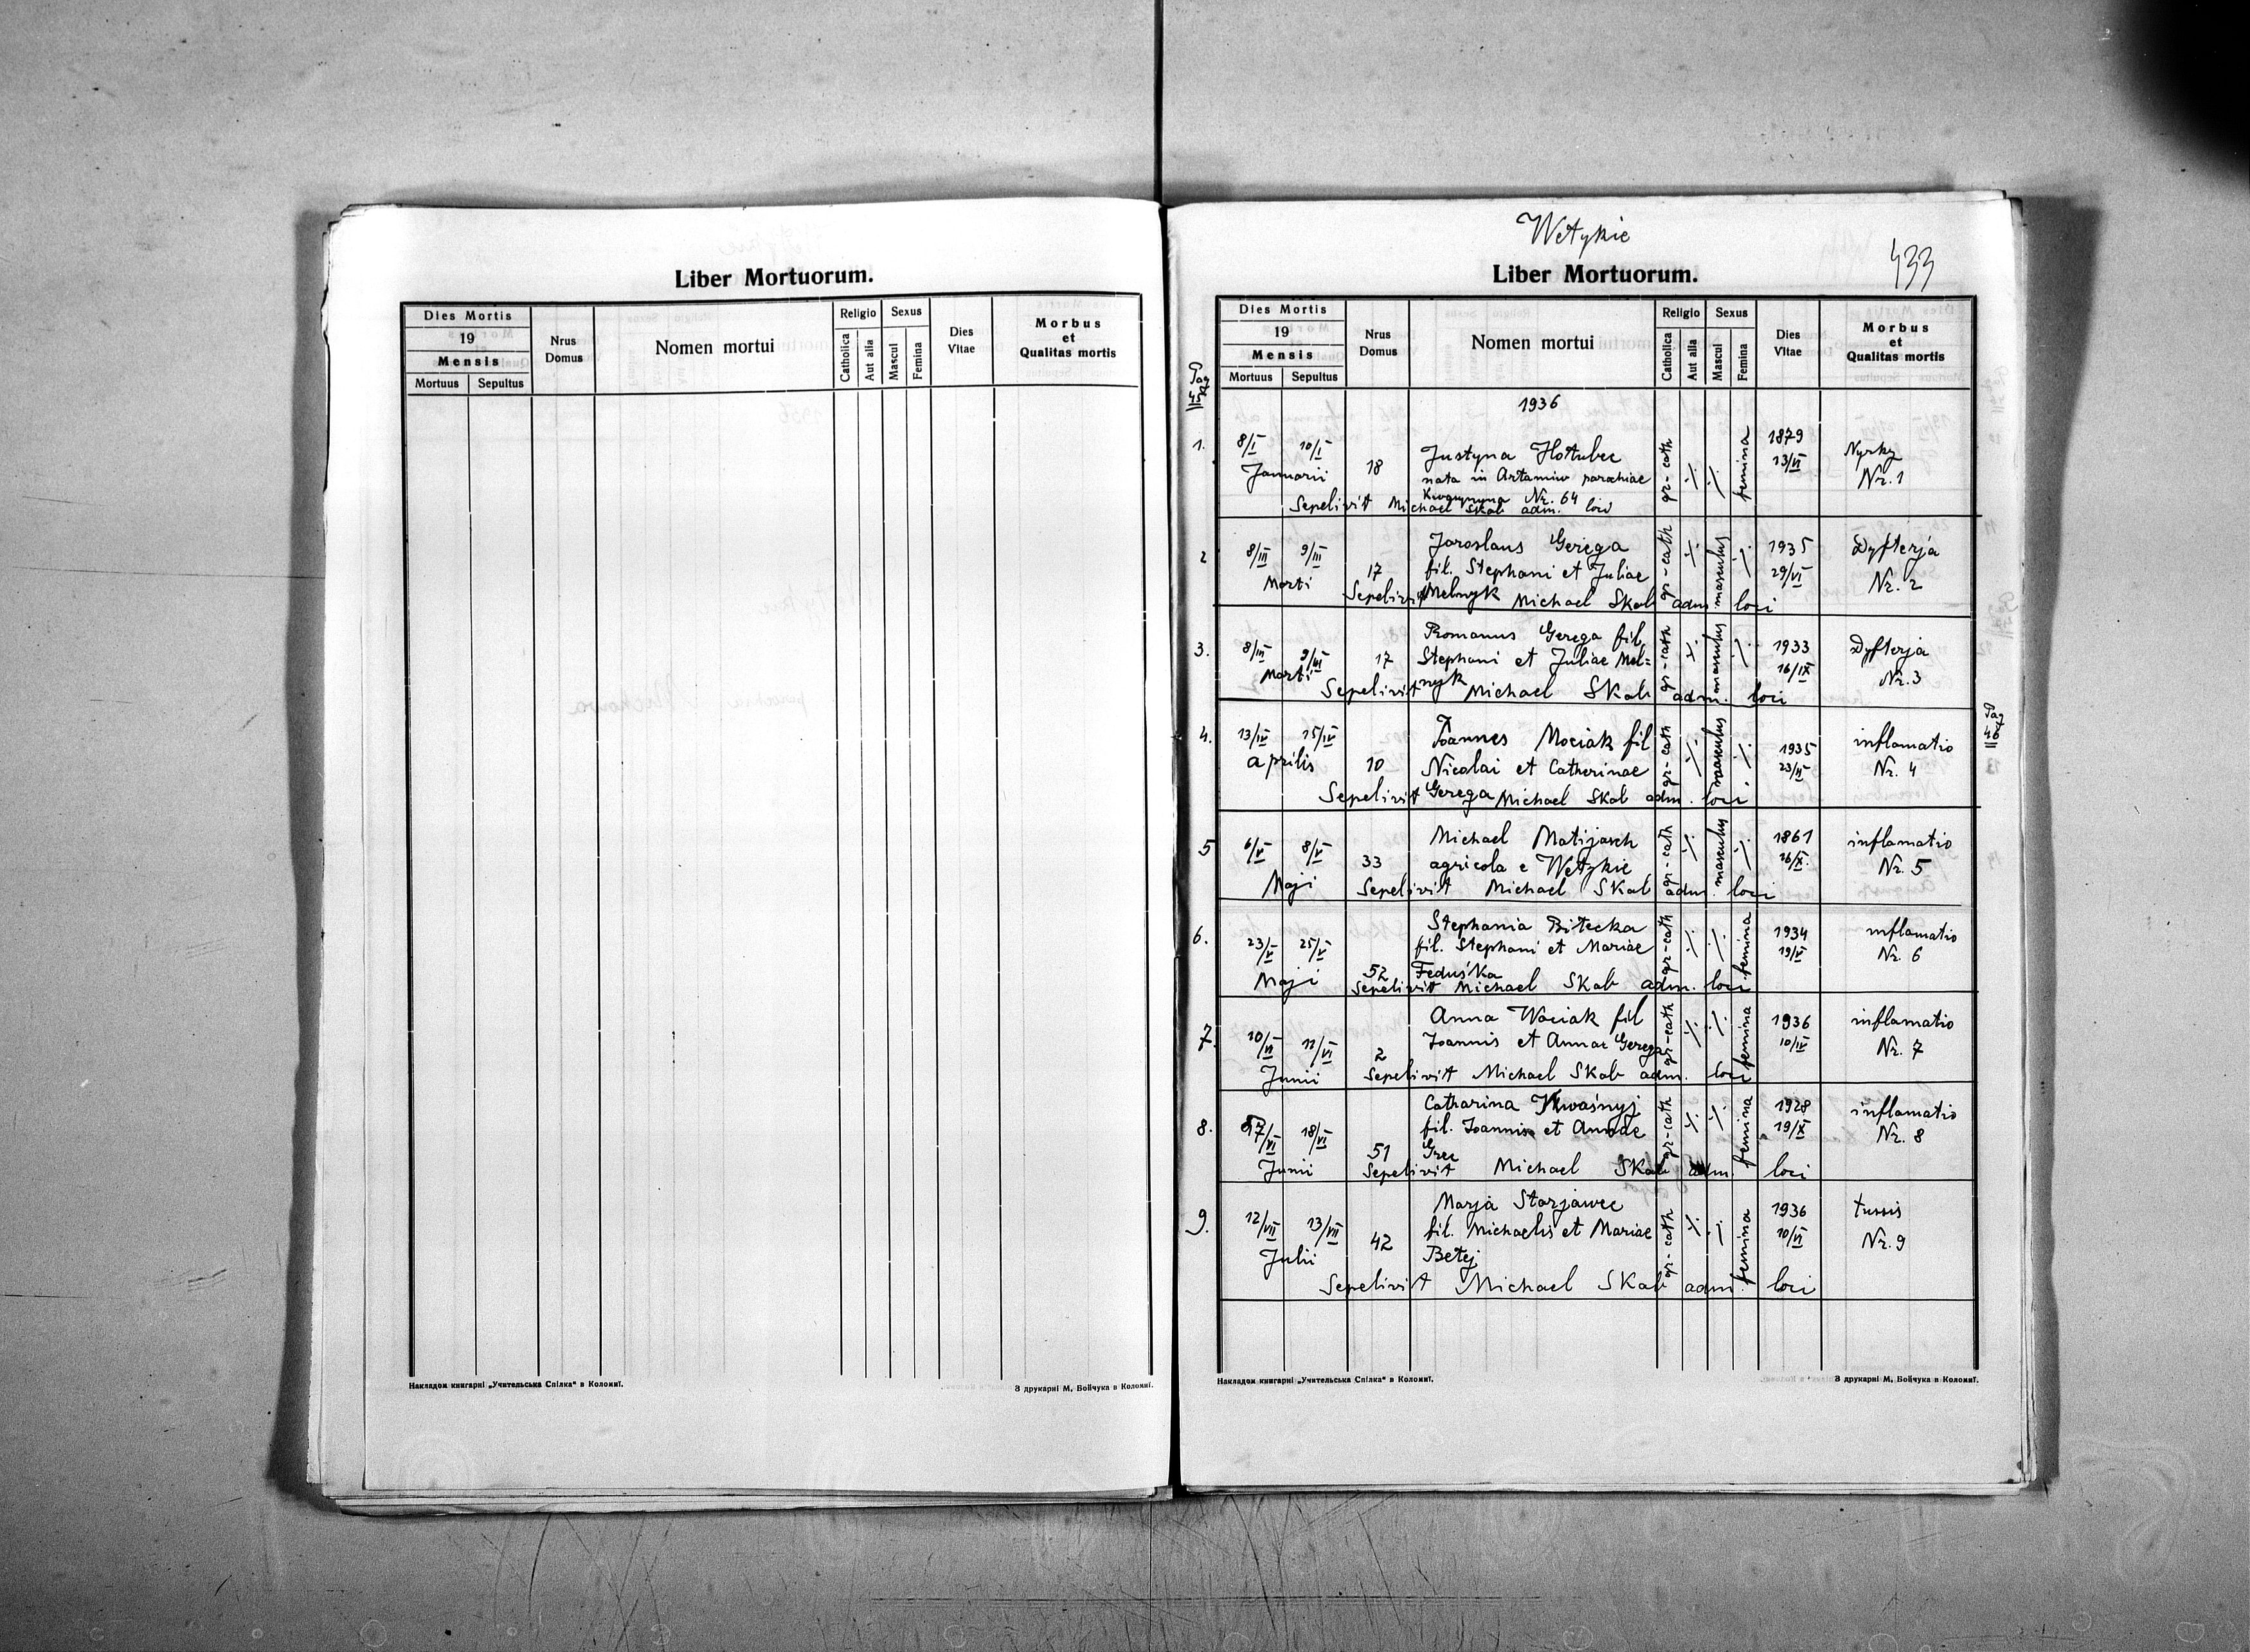 Liber Mortuorum.
Dies Mortis
19
Mensis
Mortuus Sepultus
Nrus Domus
Nomen mortui
Religio
Catholica
Aut alia
Sexus
Mascui
Femina
Dies Vitae
Morbus et Qualitas mortis
Накладом книгарні „Учительська Спілка" в Коломиї.
З друкарні М. Бойчука в Коломиї.
Wetykie
433
Liber Mortuorum.
Dies Mortis
19
Mensis
Mortuus Sepultus
Nrus Domus
Nomen mortui
Religio
Catholica
Aut alia
Sexus
Mascui
Femina
Dies Vitae
Morbus et Qualitas mortis
Pag
1936
1. 8/I 10/I Justyna Hołubec gr-cath femina 1879
Januarii 18 nata in Artamiw parochiae 13/VI Nyrky
Nr. 64 Nr. 1
Sepelivit Michael Skab adm. loci
2 8/III 9/III Jaroslaus Gerega gr-cath masculus 1935 Dyfterja
Marti 17 fil. Stephani et Juliae 29/VI Nr. 2
Sepelivit Melnyk Michael Skab adm loci
3. 8/III 9/III Romanus Gerega fil. gr-cath masculus 1933 Dyfterja
Marti 17 Stephani et Juliae Mel= 16/IX Nr. 3
nyk
Sepelivit Michael Skab adm. loci
4. 13/IV 15/IV Joannes Mociak fil gr-cath masculus 1935 inflamatio
aprilis 10 Nicolai et Catherinae Nr. 4
Sepelivit Gerega Michael Skab adm. loci
Pag
5 6/V 8/V Michael Matijasch gr-cath masculus 1861 inflamatio
33 agricola e Wetykie 26/X. Nr. 5
Maji Sepelivit Michael Skab adm. loci
6. 23/V 25/V Stephania Bitecka gr-cath femina 1934 inflamatio
fil. Stephani et Mariae 19/V Nr. 6
Maji 52 Feduśka
Sepelivit Michael Skab adm. loci
7. 10/VI 11/VI Anna Wociak fil gr-cath femina 1936 inflamatio
2 Joannis et Annae Gerega 10/IV Nr. 7
Junii Sepelivit Michael Skab adm. loci
8. 17/VI 18/VI Catharina Kwaśnyj gr-cath femina 1928 inflamatio
fil. Joannis et Annae 19/X Nr. 8
51 Grec
Junii Sepelivit Michael Skab adm. loci
9. 12/VII 13/VII Marja Starjawec gr-cath femina 1936 tussis
42 fil. Michaelis et Mariae 10/VI Nr. 9
Julii Betej
Sepelivit Michael Skab adm. loci
Накладом книгарні „Учительська Спілка" в Коломиї.
З друкарні М. Бойчука в Коломиї.